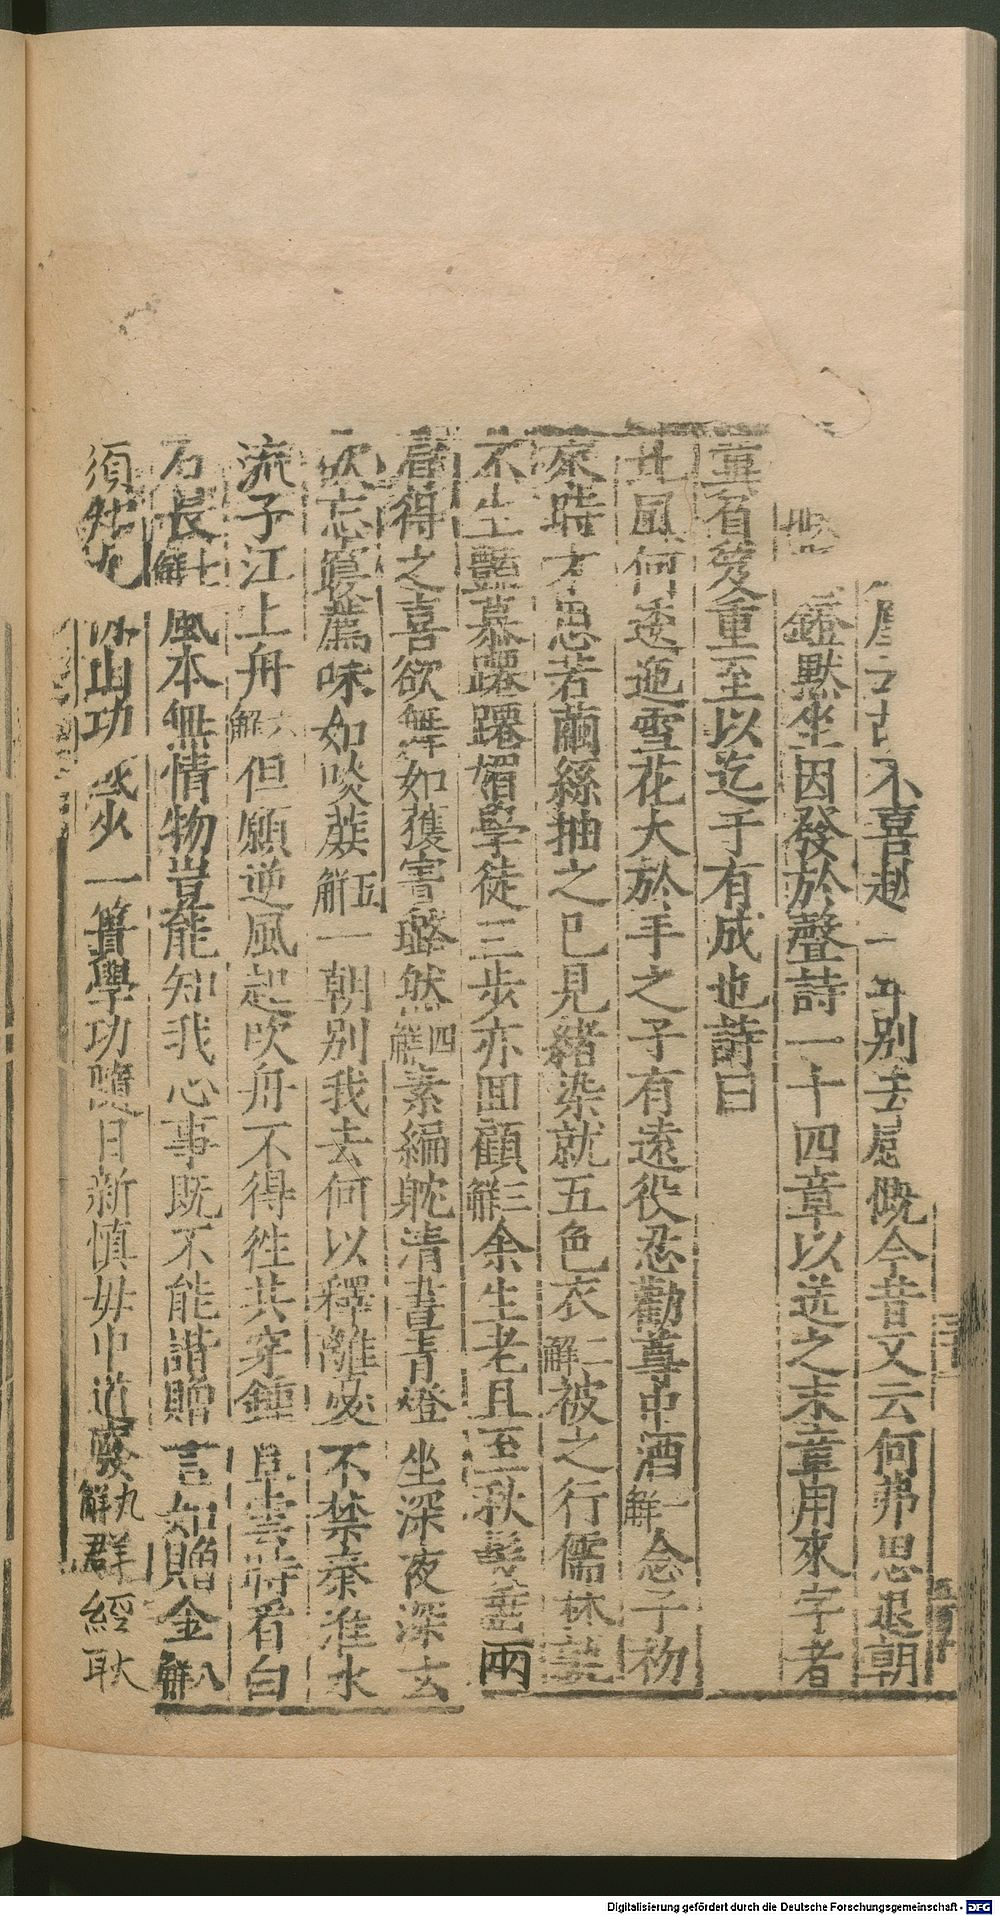 不喜 別去 慨今昔文云何弗思退朝
鐙默坐因發於聲詩一十四章以送之末章用來字者
冀省愛重至以迄于有成也詩曰
廿回何逶迤雪花大於手之子有遠役忍勸尊中酒一解念子初
來時才思若繭絲抽之已見緒染就五色衣二解被之行儒林
不生艷慕躚躚媚學徒三步亦回顧三解余生老且至秋髮垂兩
肩得之喜欲舞如獲寶璐然四解素編敞清晝青燈坐深夜深玄
欣忘寢薦味如啖蔗五解一朝別我去何以釋離憂不禁秦淮水
流子江上舟六解但願逆風起吹舟不得往共穿鍾阜雲時看白
石長七解風本無情物豈能知我心事既不能諧贈言如贈金八解
須 山功 一簣學功隨日新慎毋中道廢九解群經耿
Digitalisierung gefördert durch die Deutsche Forschungsgemeinschaft - DFG